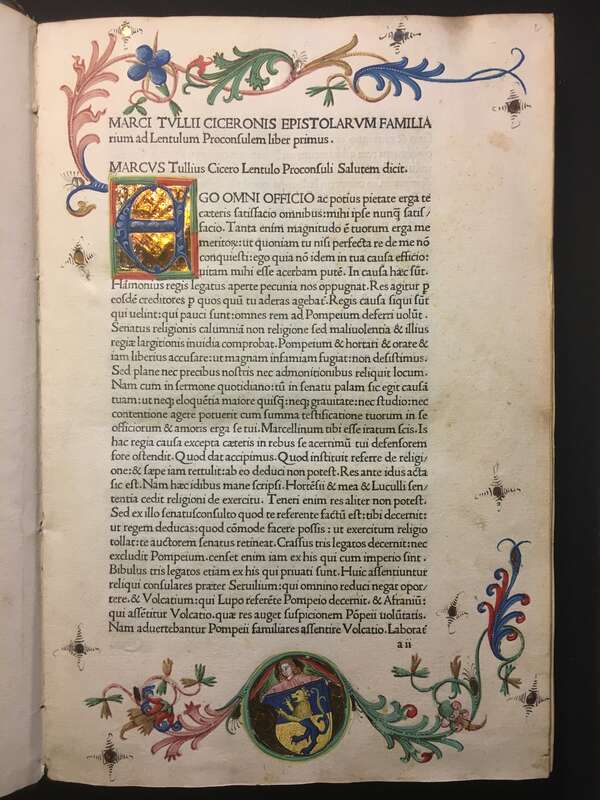 MARCI TVLLII CICERONIS EPISTOLARVM FAMILIA
rium ad Lentulum Proconsulem liber primus.
MARCVS Tullius Cicero Lentulo Proconsuli Salutem dicit.
EGO OMNI OFFICIO ac potius pietate erga te
cæteris satisfacio omnibus: mihi ipse nunꝗ̃ satis/
facio. Tanta enim magnitudo ē tuorum erga me
meritoꝝ: ut quoniam tu nisi perfecta re de me nō
conquiesti: ego quia nō idem in tua causa efficio:
uitam mihi esse acerbam putē. In causa hæc sūt.
Hāmonius regis legatus aperte pecunia nos oppugnat. Res agitur ꝑ
eosdē creditores ꝑ quos quū tu aderas agebat᷑. Regis causa siqui sūt
qui uelint: qui pauci sunt: omnes rem ad Pompeium deferri uolūt.
Senatus religionis calumniā non religione sed maliuolentia & illius
regiæ largitionis inuidia comprobat. Pompeium & hortari & orare &
iam liberius accusare: ut magnam infamiam fugiat: non desistimus.
Sed plane nec precibus nostris nec admonitionibus reliquit locum.
Nam cum in sermone quotidiano: tū in senatu palam sic egit causā
tuam: ut neqꝫ eloquētia maiore quisꝗ̃: neqꝫ grauitate: nec studio: nec
contentione agere potuerit cum summa testificatione tuorum in se
officiorum & amoris erga se tui. Marcellinum tibi esse iratum scis. Is
hac regia causa excepta cæteris in rebus se acerrimū tui defensorem
fore ostendit. Quod dat accipimus. Quod instituit referre de religi/
one: & sæpe iam rettulit: ab eo deduci non potest. Res ante idus acta
sic est. Nam hæc idibus mane scripsi. Hortēsii & mea & Luculli sen/
tentia cedit religioni de exercitu. Teneri enim res aliter non potest.
Sed ex illo senatusconsulto quod te referente factū est: tibi decernit:
ut regem deducas: quod cōmode facere possis: ut exercitum religio
tollat: te auctorem senatus retineat. Crassus tris legatos decernit: nec
excludit Pompeium. censet enim iam ex his qui cum imperio sint.
Bibulus tris legatos etiam ex his qui priuati sunt. Huic assentiuntur
reliqui consulares præter Seruilium: qui omnino reduci negat opor/
tere. & Volcatium: qui Lupo referēte Pompeio decernit. & Afraniū:
qui assētitur Volcatio. quæ res auget suspicionem Pōpeii uolūtatis.
Nam aduertebantur Pompeii familiares assentire Volcatio. Laborat᷑
a ii